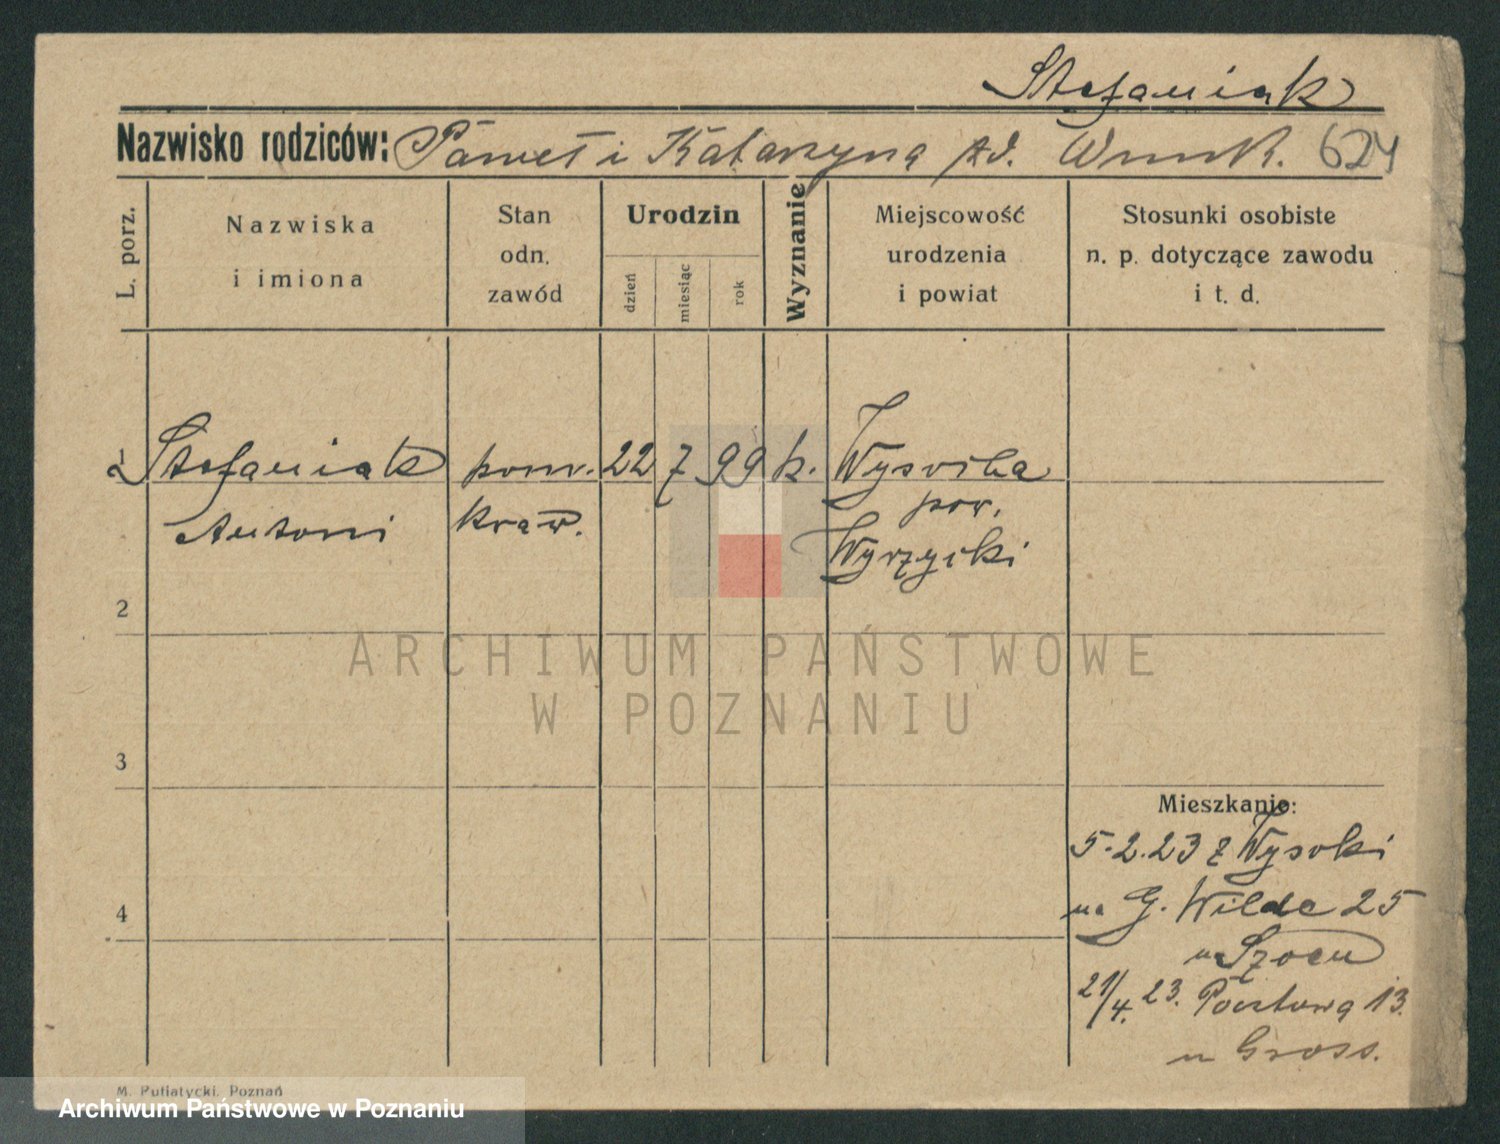 Stefaniak
Nazwisko rodziców: Paweł i Katarzyna zd. 624
L. porz.
Nazwiska
i imiona
Stan
odn.
zawód
Urodzin
dzień
miesiąc
rok
Wyznanie
Miejscowość
urodzenia
i powiat
Stosunki osobiste
n. p. dotyczące zawodu
i t. d.
1 Stefaniak 22 7 99 k. Wysoka
Antoni kraw. pow.
Wyrzyski
2
ARCHIWUM PAŃSTWOWE
W POZNANIU
3
Mieszkanie:
5.2.23 z Wysoki
4
na G. Wilde 25
u
21/4. 23. Pocztowa 13.
u Gross.
M. Putiatycki, Poznań
Archiwum Państwowe w Poznaniu